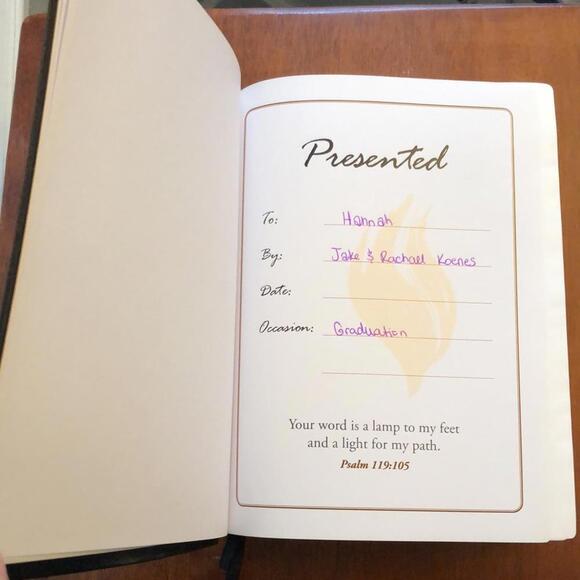 Presented
To: Hannah
By: Jake & Rachael Koenes
Date:
Occasion: Graduation
Your word is a lamp to my feet
and a light for my path.
Psalm 119:105